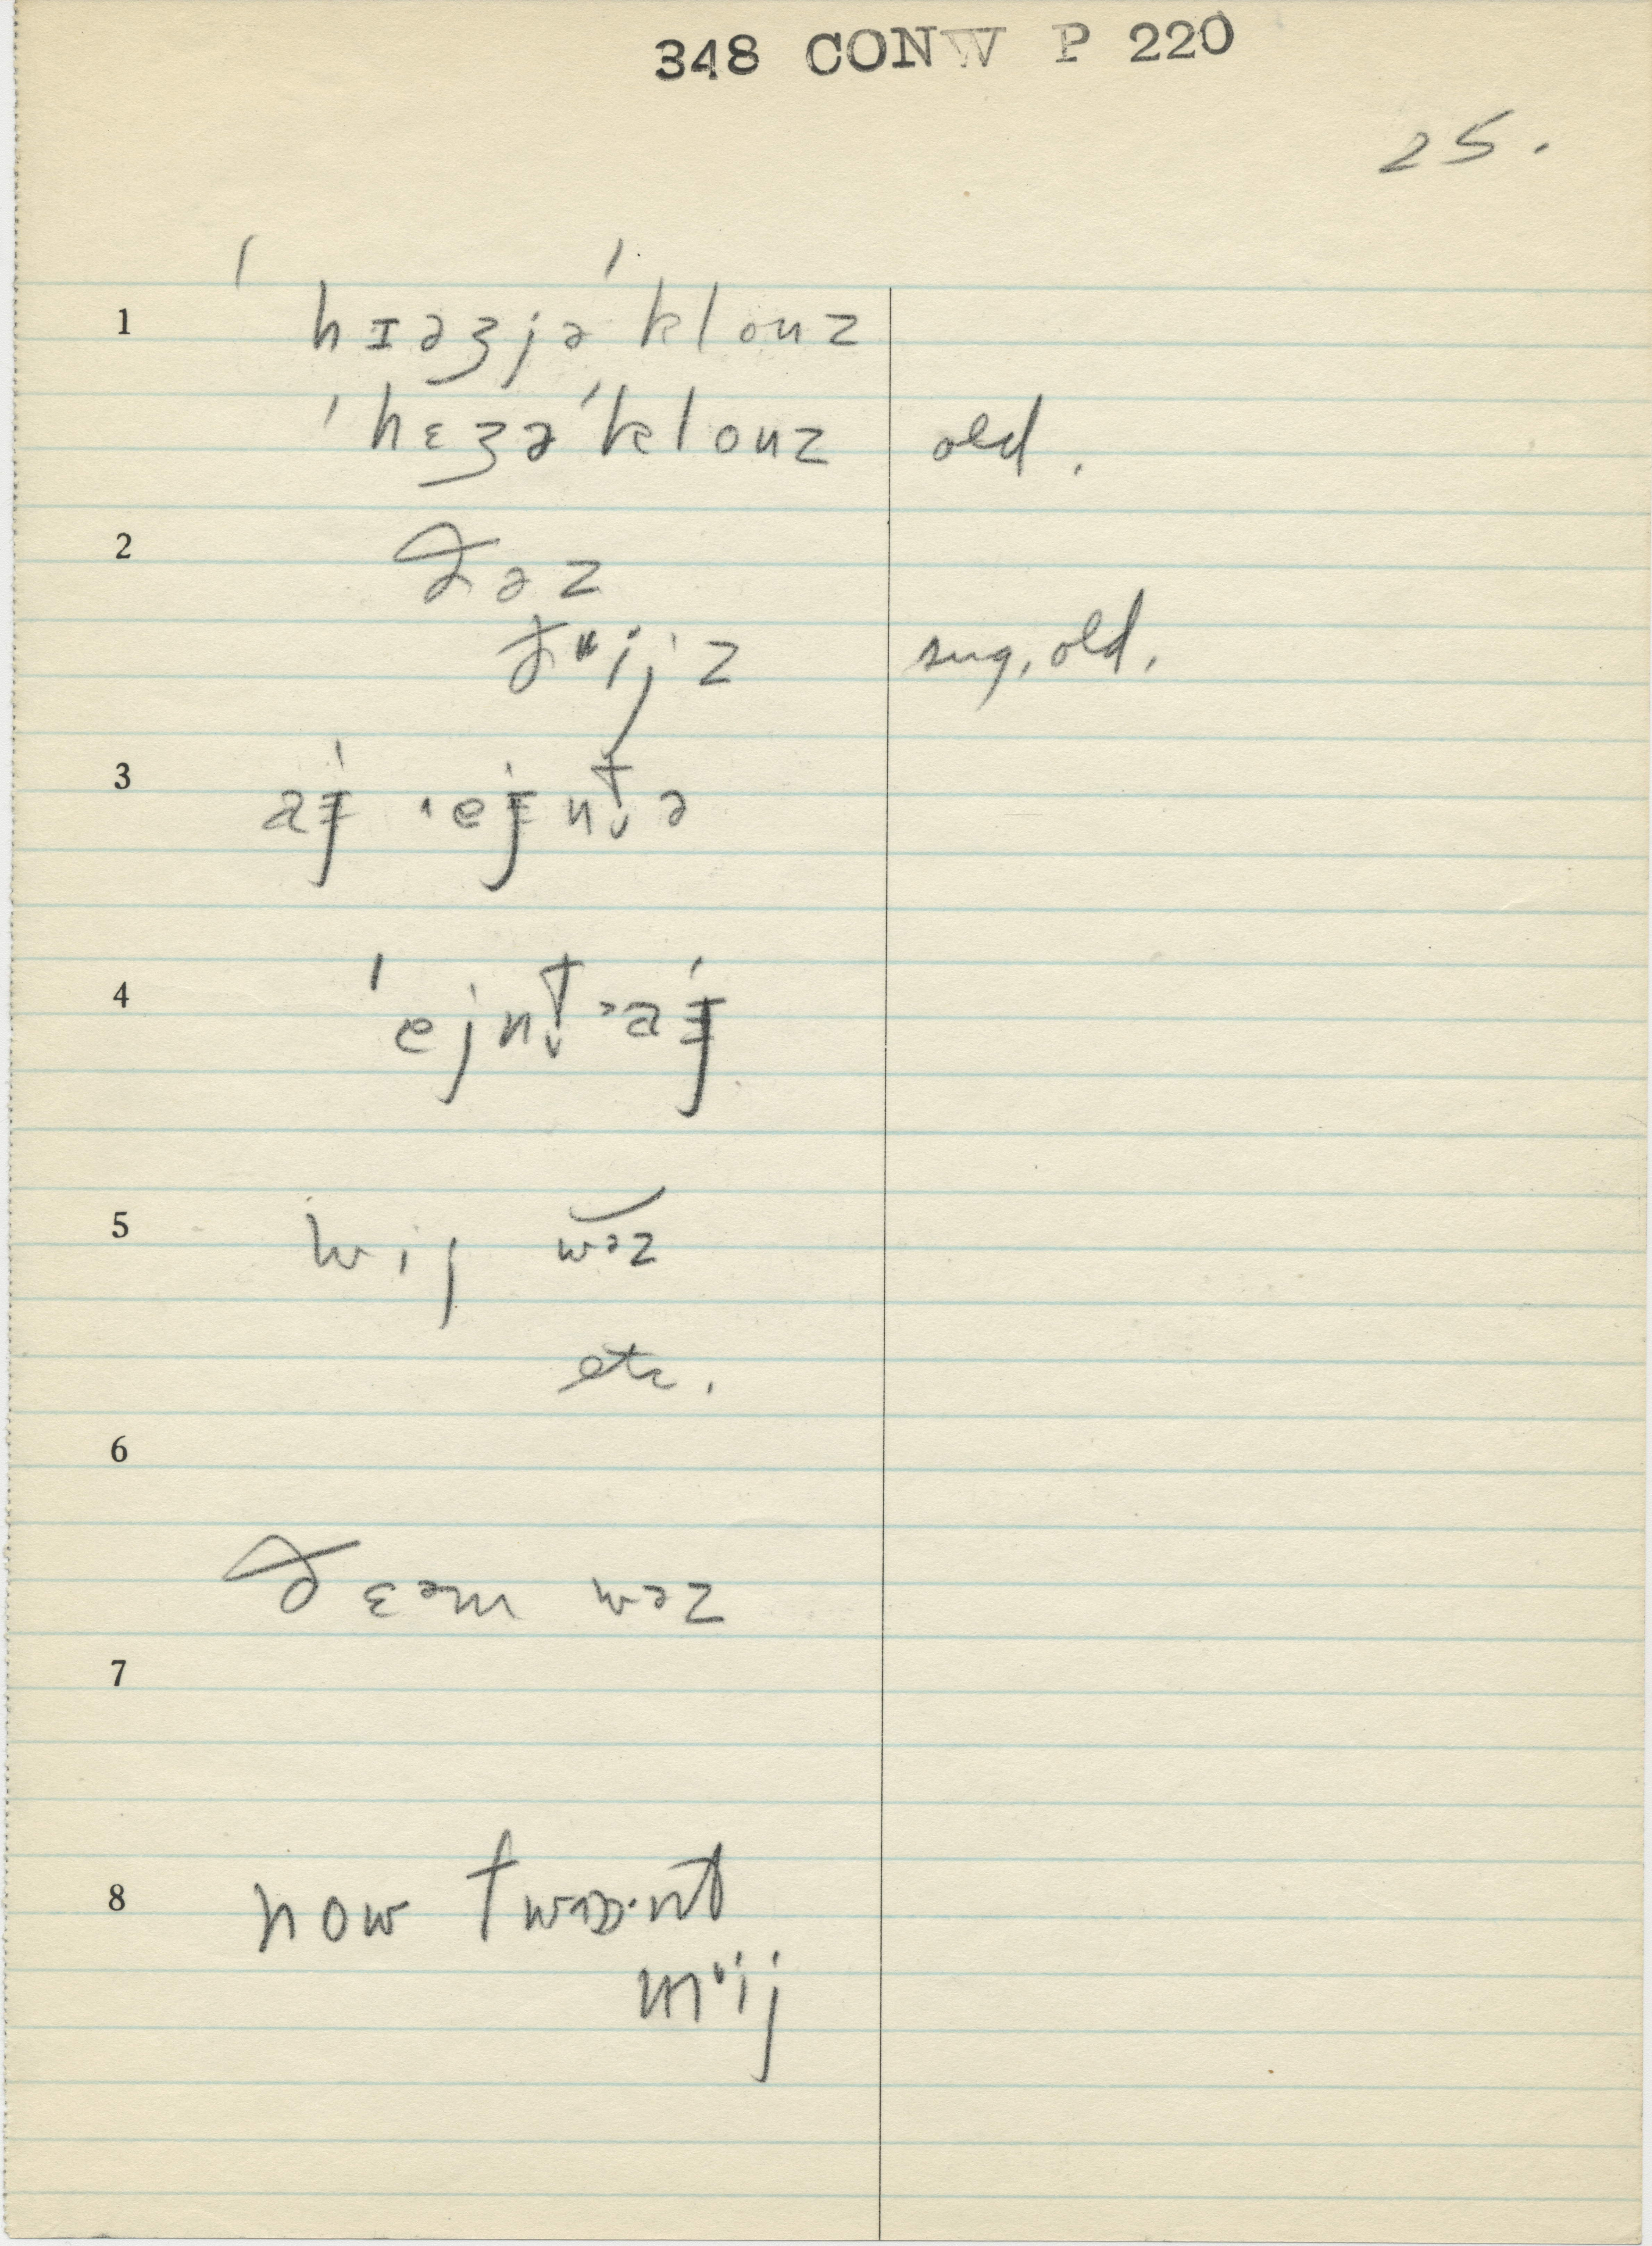 348 CONW P 220
25.
1 ˈhɪəʒjəˈklouz
ˈhɛʒəˈklouz old.
2 ðəz
ðᵊijz sug, old.
3 aɉ ˈeɉnt̬ə
4 ˈejnt̬ əaɉ
5 wij wəz
etc.
6
ðɛəm wəz
7
8 now twɒznt
mᵊij